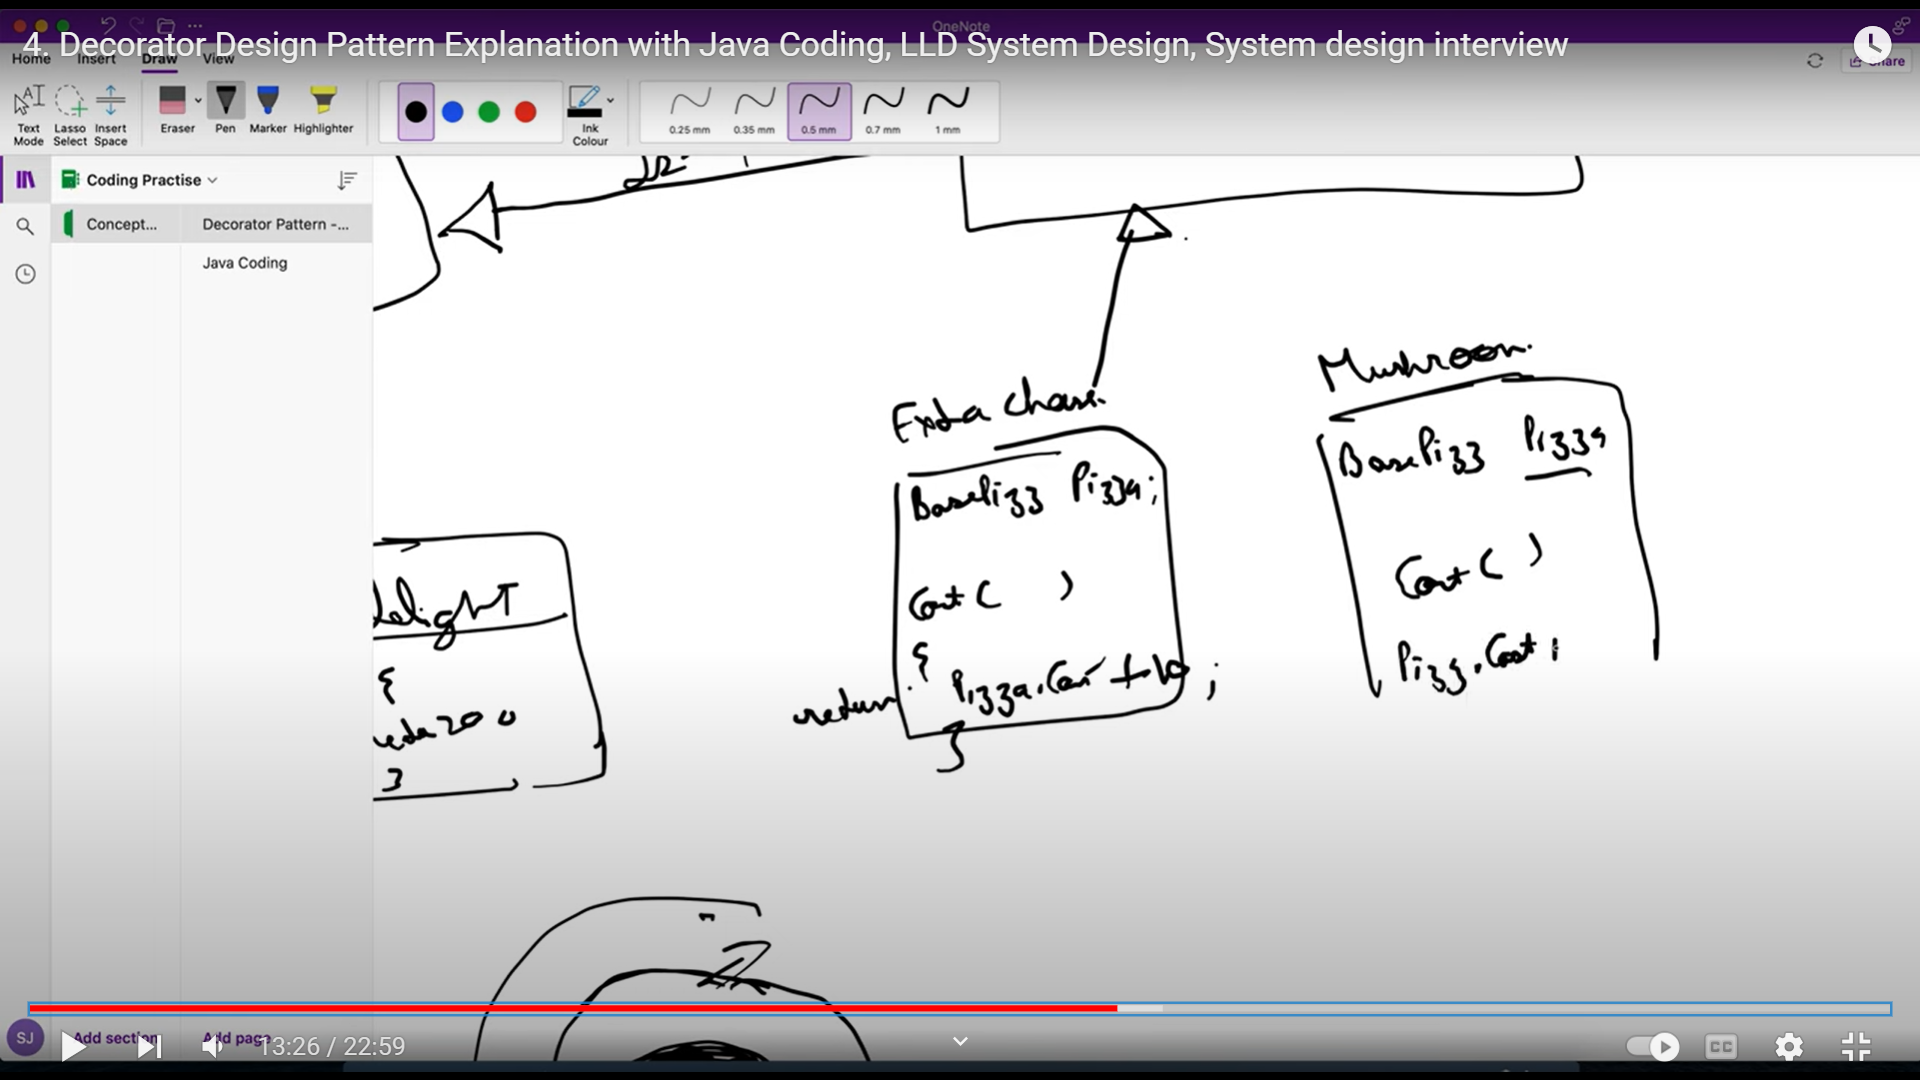 OneNote
4. Decorator Design Pattern Explanation with Java Coding, LLD System Design, System design interview
Home Insert Draw View
Share
Text Mode
Lasso Select
Insert Space
Eraser
Pen
Marker
Highlighter
Ink Colour
0.25 mm
0.35 mm
0.5 mm
0.7 mm
1 mm
Coding Practise
Concept...
Decorator Pattern -...
Java Coding
Mushroom
BasePizz Pizza
Cost ( )
Pizz.Cost
Extra
BasePizz Pizza;
Cost ( )
{
return Pizza.Cost + 10 ;
}
Delight
{
200
}
2
SJ
Add section
Add page
13:26 / 22:59
CC